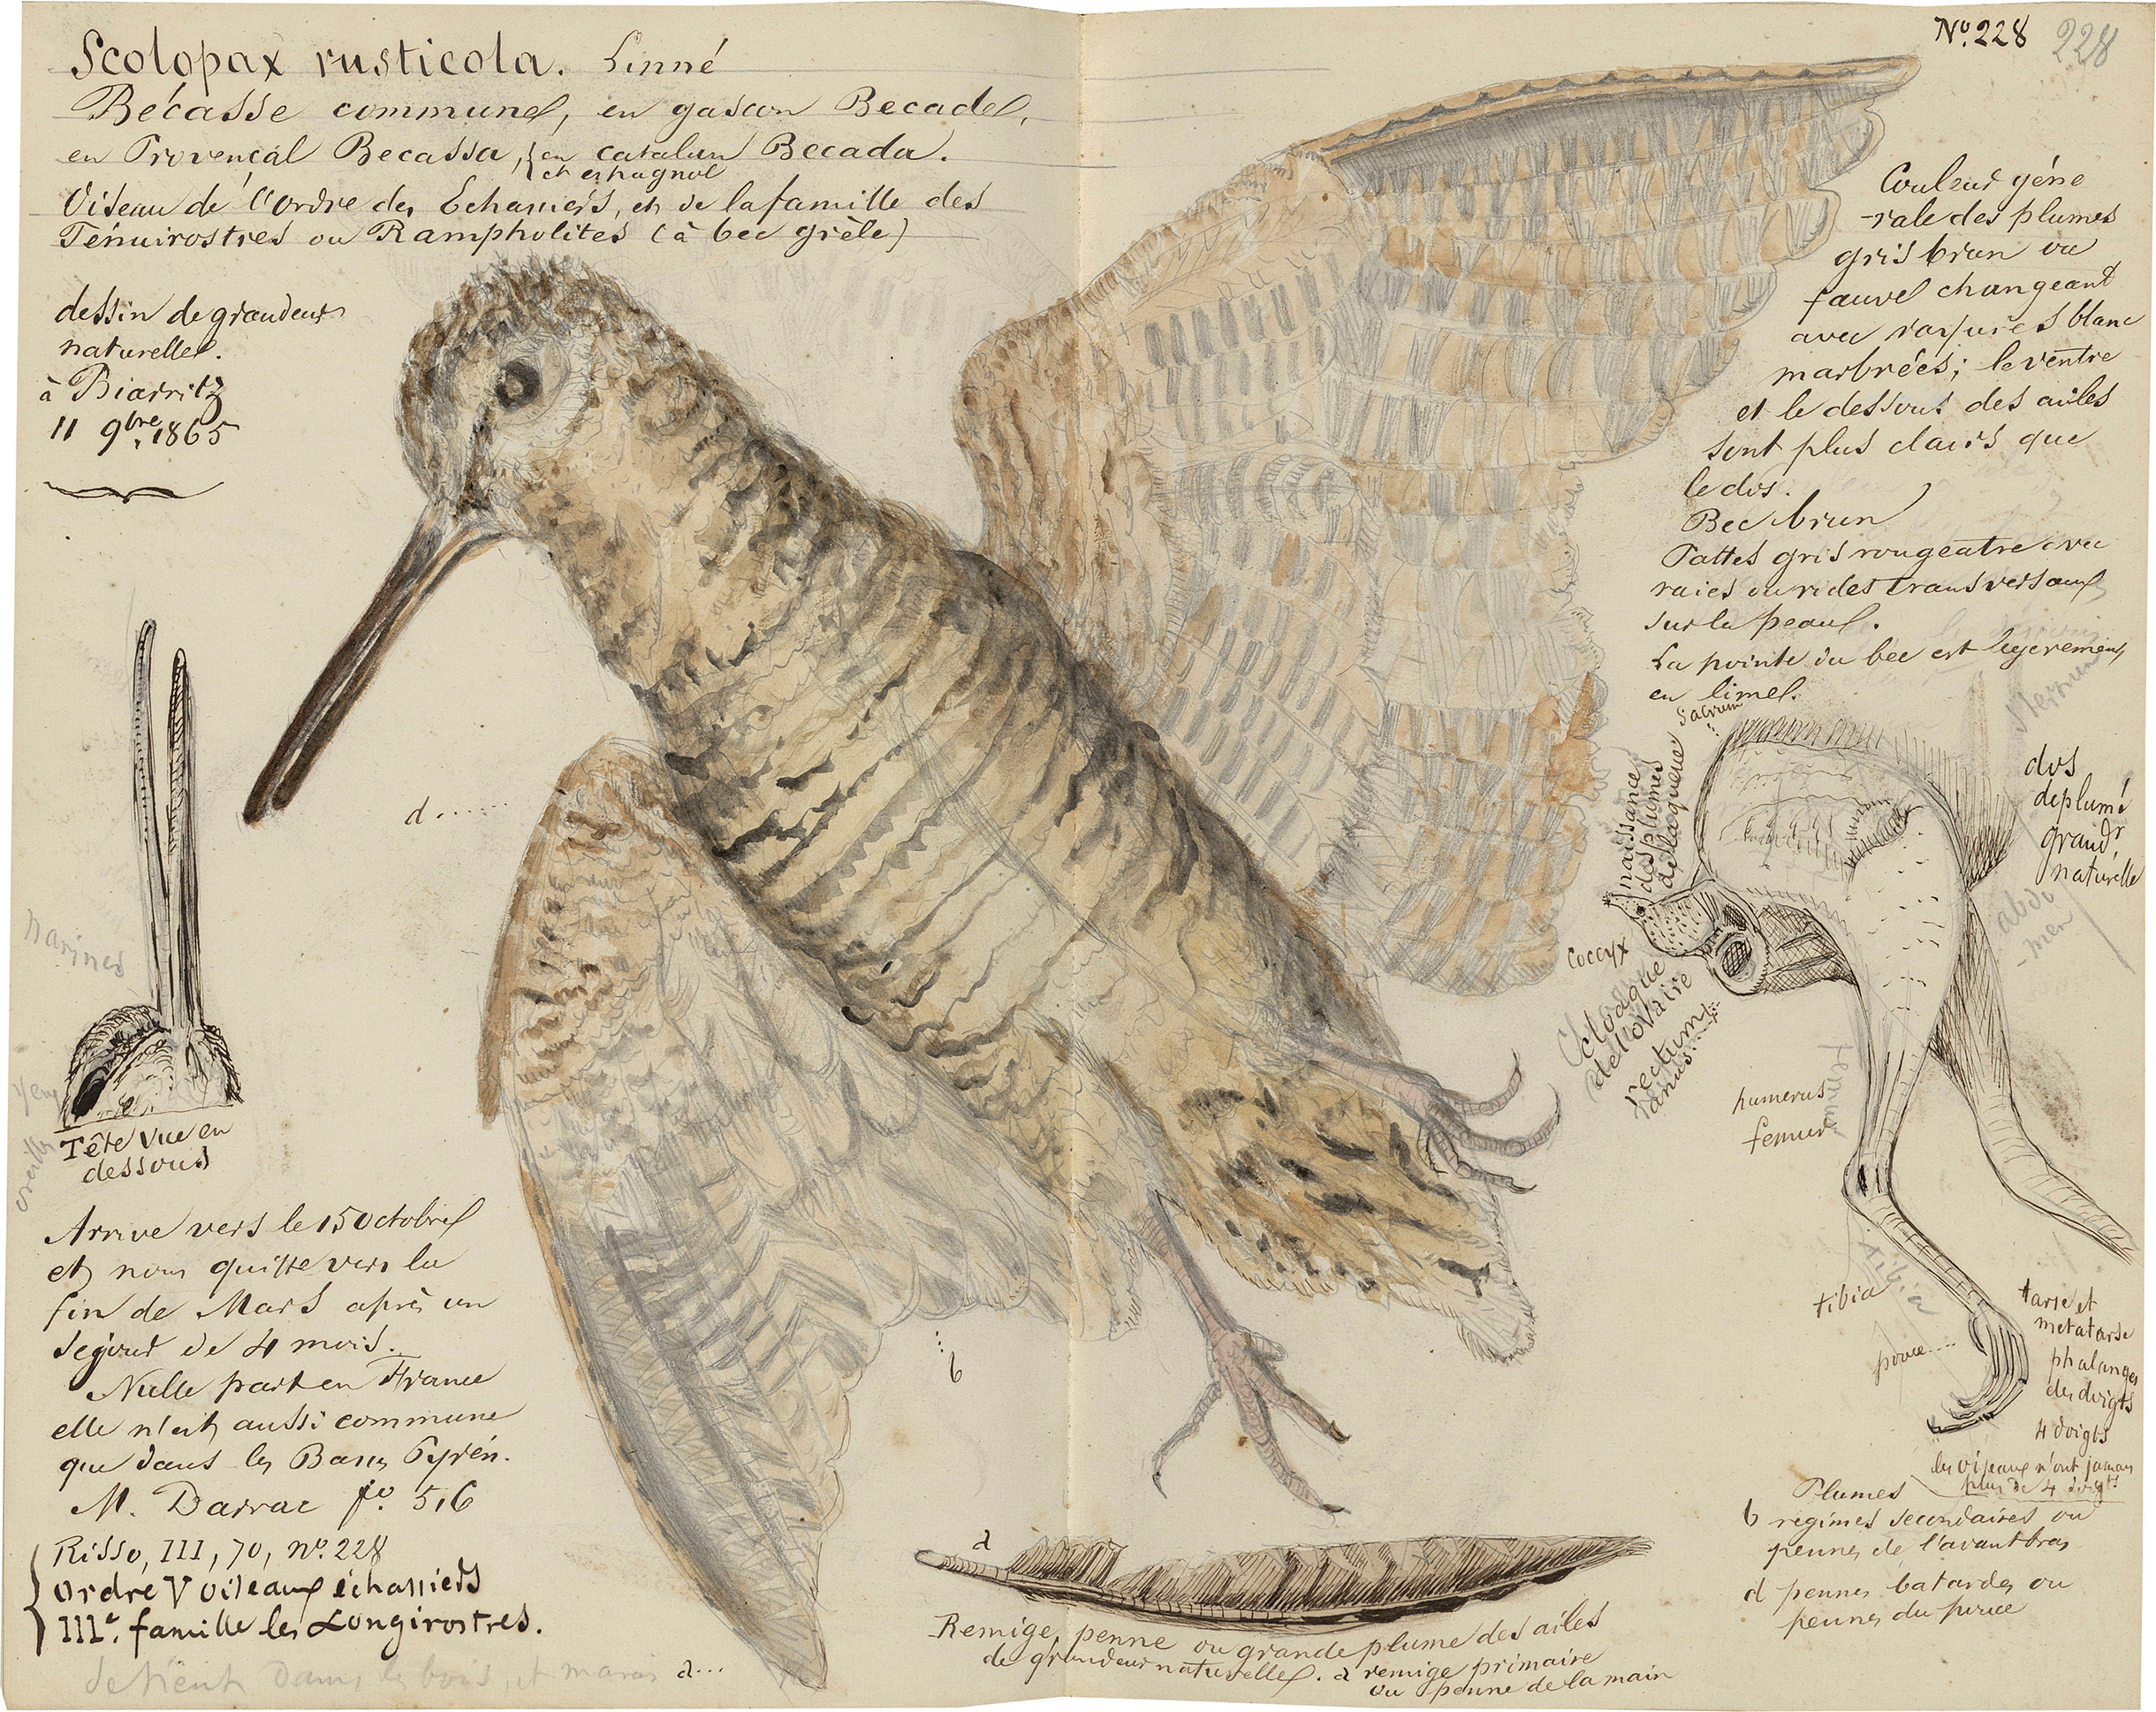 Nº. 228 228
Scolopax rusticola. Linné
Bécasse commune, en gascon Becade,
en Provençal Becassa, en catalan Becada.
et espagnol
Oiseau de l'ordre des Echassiers, et de la famille des
Ténuirostres ou Rampholites (à bec grèle)
dessin de grandeur
naturelle.
à Biarritz
11 9bre. 1865
Couleur géné
-rale des plumes
gris brun ou
fauve changeant
avec rayures blanc
marbrées; le ventre
et le dessous des ailes
sont plus clairs que
le dos.
Bec brun
Pattes gris rougeatre avec
raies ou rides transversaux
sur la peau.
La pointe du bec est legerement
en lime.
d......
narines
yeux
oreilles
Tête vue en
dessous
Arrive vers le 15 Octobre
et nous quitte vers la
fin de Mars après un
séjour de 4 mois.
Nulle part en France
elle n'est aussi commune
que dans les Basses Pyrén.
M. Darrac fo. 516
Risso, III, 70, nº. 228
Ordre V oiseaux échassiers
IIIe. famille les Longirostres.
se tient dans les bois, et marais
a...
b
sacrum
sternum
naissance
des plumes
de la queue
dos
deplumé
grandr
naturelle
abdo
-men
Coccyx
Cloaque
de l'ovaire
rectum
anus
humerus
femur
femur
tibia
tibia
pouce....
tarse et
metatarse
phalanges
des doigts
4 doigts
les oiseaux n'ont jamais
plus de 4 doigts
Plumes
b regimes secondaires ou
pennes de l'avant bras
d pennes batardes ou
pennes du pouce
a
Remige, penne ou grande plume des ailes
de grandeur naturelle. a remige primaire
ou penne de la main